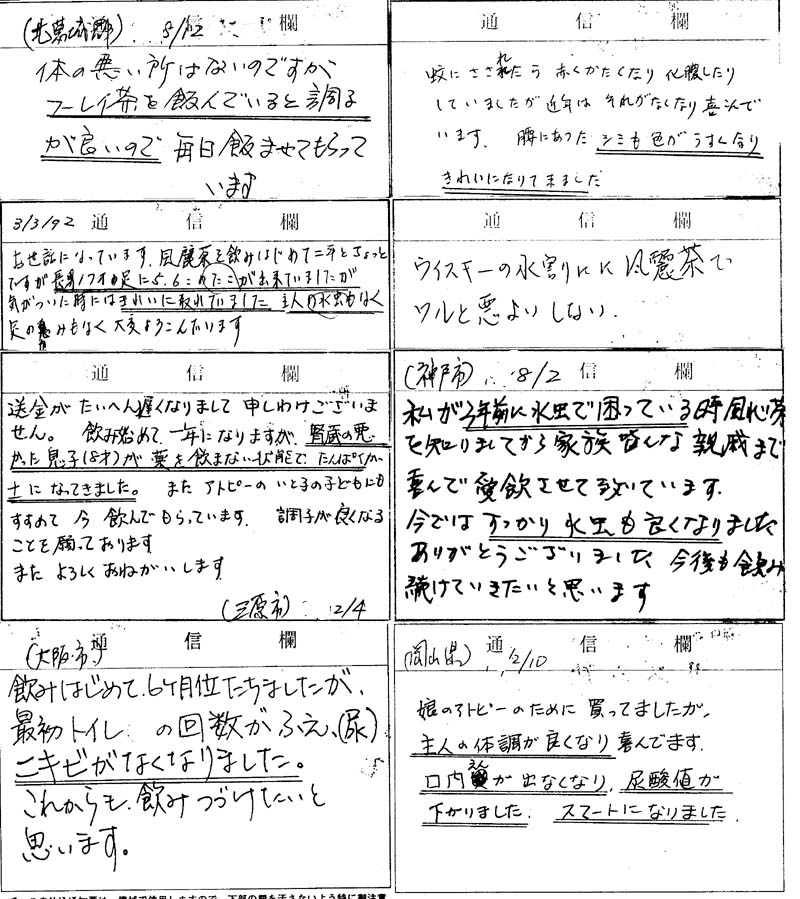 通信欄
(北葛城郡) 8/12
体の悪い所はないのですが
フーレイ茶を飲んでいると調子
が良いので 毎日飲ませてもらって
います
通信欄
蚊にさされたら 赤くかたくなり 化膿したり
していましたが近年は それがなくなり喜んで
います. 腰にあった シミも色がうすくなり
きれいになりて来ました
3/3/92 通信欄
お世話になっています. 風麗茶を飲みはじめて二年とちょっと
ですが 長男17才の足に5.6このたこが出来ていましたが
気がついた時にはきれいに取れていました 主人の水虫もなく
足の痛みもなく 大変よろこんでいます
通信欄
ウイスキーの水割りにに 風麗茶で
ワルと悪よいしない.
通信欄
送金が たいへん遅くなりまして 申しわけございま
せん。 飲み始めて、一年になりますが、腎蔵の悪
かった息子(8才)が 薬を飲まない状態で、たんぱくが
±になってきました。 また アトピーの いとこの子どもにも
すすめて 今 飲んでもらっています. 調子が良くなる
ことを願っております
また よろしく おねがいします
(三原市) 12/4
(神戸市) 8/2 通信欄
私が3年前に水虫で困っている時 風心茶
を知りましてから家族皆んな 親戚まで
喜んで愛飲させて頂いています.
今では すっかり 水虫も良くなりました
ありがとうございました、今後も飲み
続けていきたいと思います
(大阪市) 通信欄
飲みはじめて、6ヶ月位たちましたが、
最初トイレ の回数がふえ、(尿)
ニキビがなくなりました。
これからも、飲みつづけたいと
思います。
(岡山県) 12/10 通信欄
娘のアトピーのために 買ってましたが、
主人の体調が良くなり 喜んでます.
口内炎が出なくなり、尿酸値が
下がりました. スマートになりました.